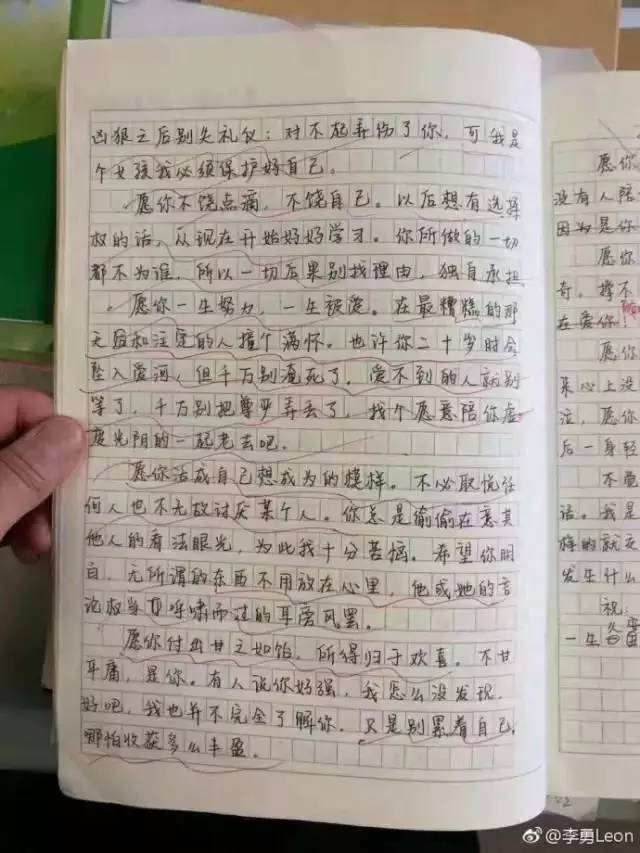 凶狠之后别失礼仪：对不起弄伤了你，可我是
个女孩我必须保护好自己。
愿你不饶点滴，不饶自己。以后想有选择
权的话，从现在开始好好学习。你所做的一切
都不为谁，所以一切后果别找理由，独自承担。
愿你一生努力，一生被爱。在最糟糕的那
天跟和注定的人撞个满怀。也许你二十岁时会
坠入爱河，但千万别淹死了，爱不到的人就别
等了，千万别把尊严弄丢了，找个愿意陪你虚
度光阴的一起老去吧。
愿你活成自己想成为的模样。不必取悦任
何人也不无故讨厌某个人。你总是偷偷在意其
他人的看法眼光，为此我十分苦恼。希望你明
白，无所谓的东西不用放在心里，他或她的言
论权当作呼啸而过的耳旁风罢。
愿你付出甘之如饴，所得归于欢喜。不甘
平庸，是你。有人说你好强，我怎么没发现，
好吧，我也并不完全了解你，只是别累着自己，
哪怕收获多么丰盈。
愿你
没有人陪
因为是你
愿你
奇，撑不
在爱你！
愿你
来心上没
泣，愿你
后一身轻
不要
话。我是
旅的就交
发生什么
祝：
一生
@李勇Leon